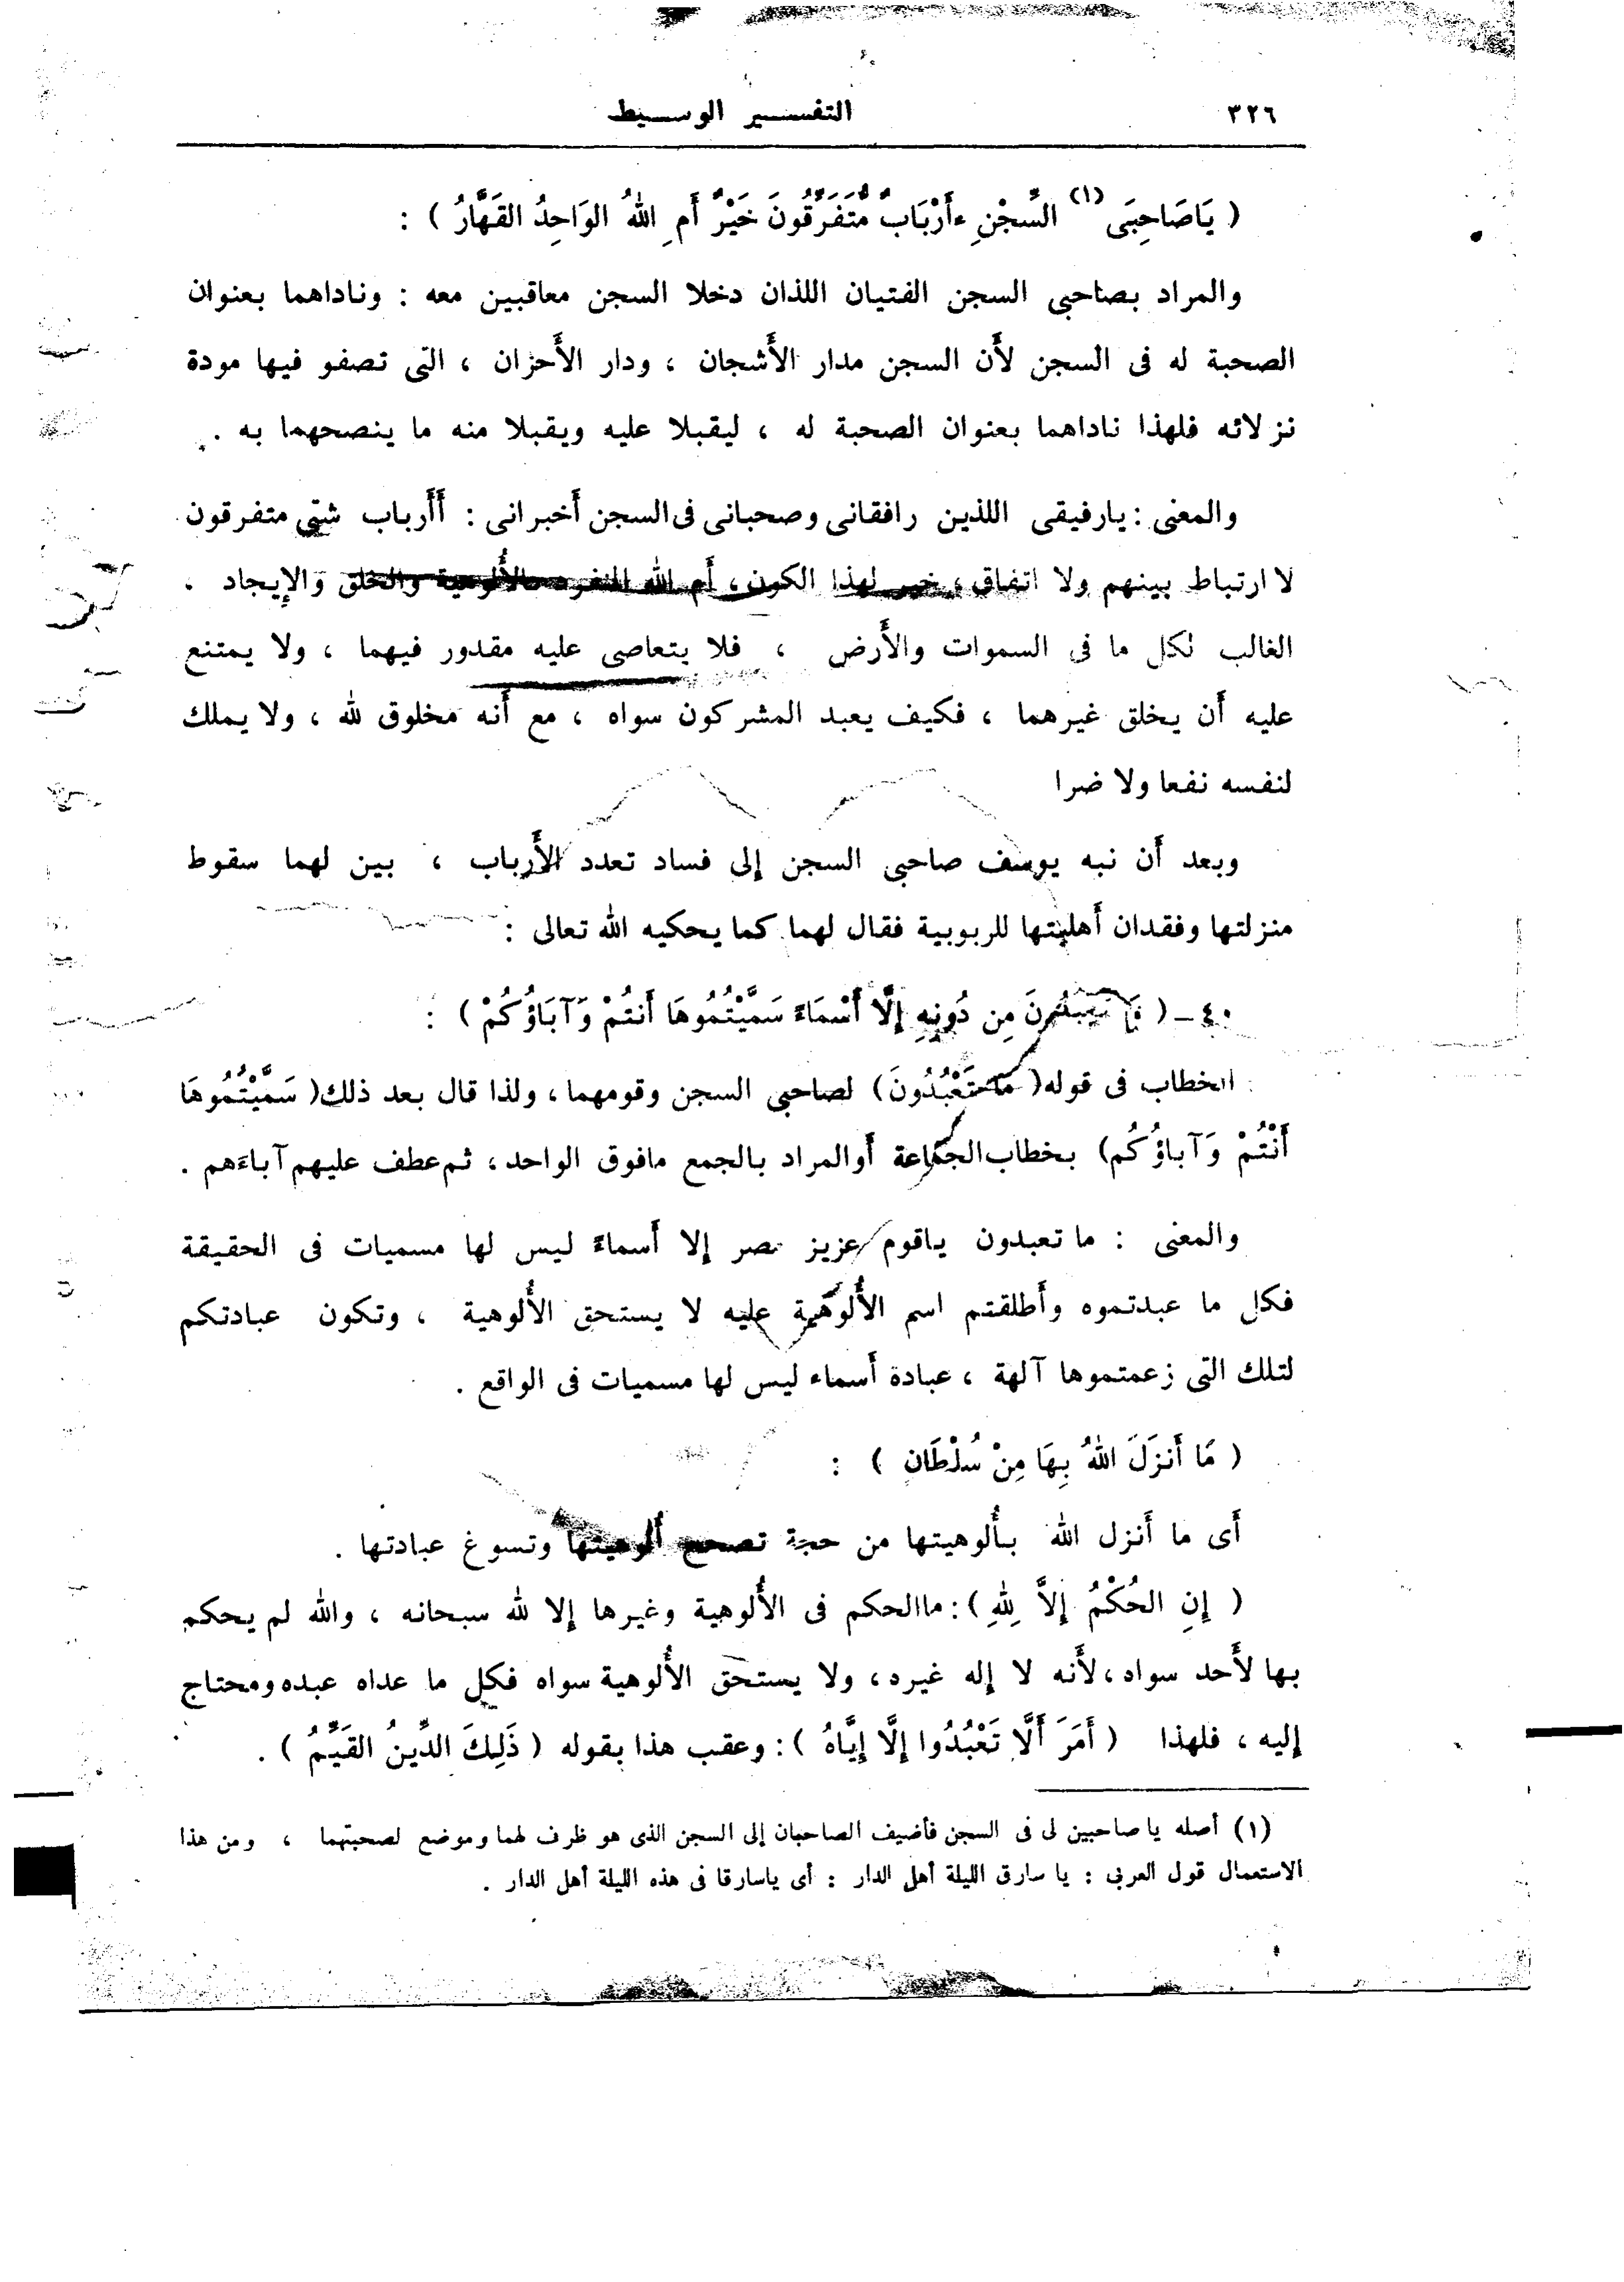 ٣٢٦
التفسير الوسيط
( يَاصَاحِبَى (١) السِّجْنِ ءأَرْبَابٌ مُّتَفَرِّقُونَ خَيْرٌ أَمِ اللهُ الوَاحِدُ القَهَّارُ ) :
والمراد بصاحبى السجن الفتيان اللذان دخلا السجن معاقبين معه : وناداهما بعنوان
الصحبة له فى السجن لأَن السجن مدار الأَشجان ، ودار الأَحزان ، التى تصفو فيها مودة
نزلائه فلهذا ناداهما بعنوان الصحبة له ، ليقبلا عليه ويقبلا منه ما ينصحهما به .
والمعنى : يارفيقى اللذين رافقانى وصحبانى فى السجن أَخبرانى : أَأَرباب شتى متفرقون
لا ارتباط بينهم ولا اتفاق ، خير لهذا الكون ، أَم الله المنفرد بالأُلوهية والخلق والإِيجاد .
الغالب لكل ما فى السموات والأَرض ، فلا يتعاصى عليه مقدور فيهما ، ولا يمتنع
عليه أَن يخلق غيرهما ، فكيف يعبد المشركون سواه ، مع أَنه مخلوق لله ، ولا يملك
لنفسه نفعا ولا ضرا
وبعد أَن نبه يوسف صاحبى السجن إِلى فساد تعدد الأَرباب ، بين لهما سقوط
منزلتها وفقدان أَهليتها للربوبية فقال لهما كما يحكيه الله تعالى :
٤٠ – ( مَا تَعْبُدُونَ مِن دُونِهِ إِلَّا أَسْمَاءً سَمَّيْتُمُوهَا أَنتُمْ وَآبَاؤُكُمْ ) :
الخطاب فى قوله ( مَا تَعْبُدُونَ ) لصاحبى السجن وقومهما ، ولذا قال بعد ذلك ( سَمَّيْتُمُوهَا
أَنْتُمْ وَآباؤُكُم ) بخطاب الجماعة أَو المراد بالجمع مافوق الواحد ، ثم عطف عليهم آباءَهم .
والمعنى : ما تعبدون ياقوم عزيز مصر إِلا أَسماءً ليس لها مسميات فى الحقيقة
فكل ما عبدتموه وأَطلقتم اسم الأُلوهية عليه لا يستحق الأُلوهية ، وتكون عبادتكم
لتلك التى زعمتموها آلهة ، عبادة أَسماء ليس لها مسميات فى الواقع .
( مَا أَنزَلَ اللهُ بِهَا مِنْ سُلْطَان ) :
أَى ما أَنزل الله بأُلوهيتها من حجة تصحح أُلوهيتها وتسوغ عبادتها .
( إِنِ الحُكْمُ إِلاَّ لِلهِ ) : ماالحكم فى الأُلوهية وغيرها إِلا لله سبحانه ، والله لم يحكم
بها لأَحد سواه ، لأَنه لا إِله غيره ، ولا يستحق الأُلوهية سواه فكل ما عداه عبده ومحتاج
إِليه ، فلهذا ( أَمَرَ أَلَّا تَعْبُدُوا إِلَّا إِيَّاهُ ) : وعقب هذا بقوله ( ذَلِكَ الدِّينُ القَيِّمُ ) .
(١) أصله يا صاحبين لى فى السجن فأضيف الصاحبان إلى السجن الذى هو ظرف لهما وموضع لصحبتهما ، ومن هذا
الاستعمال قول العربى : يا سارق الليلة أهل الدار : أى ياسارقا فى هذه الليلة أهل الدار .